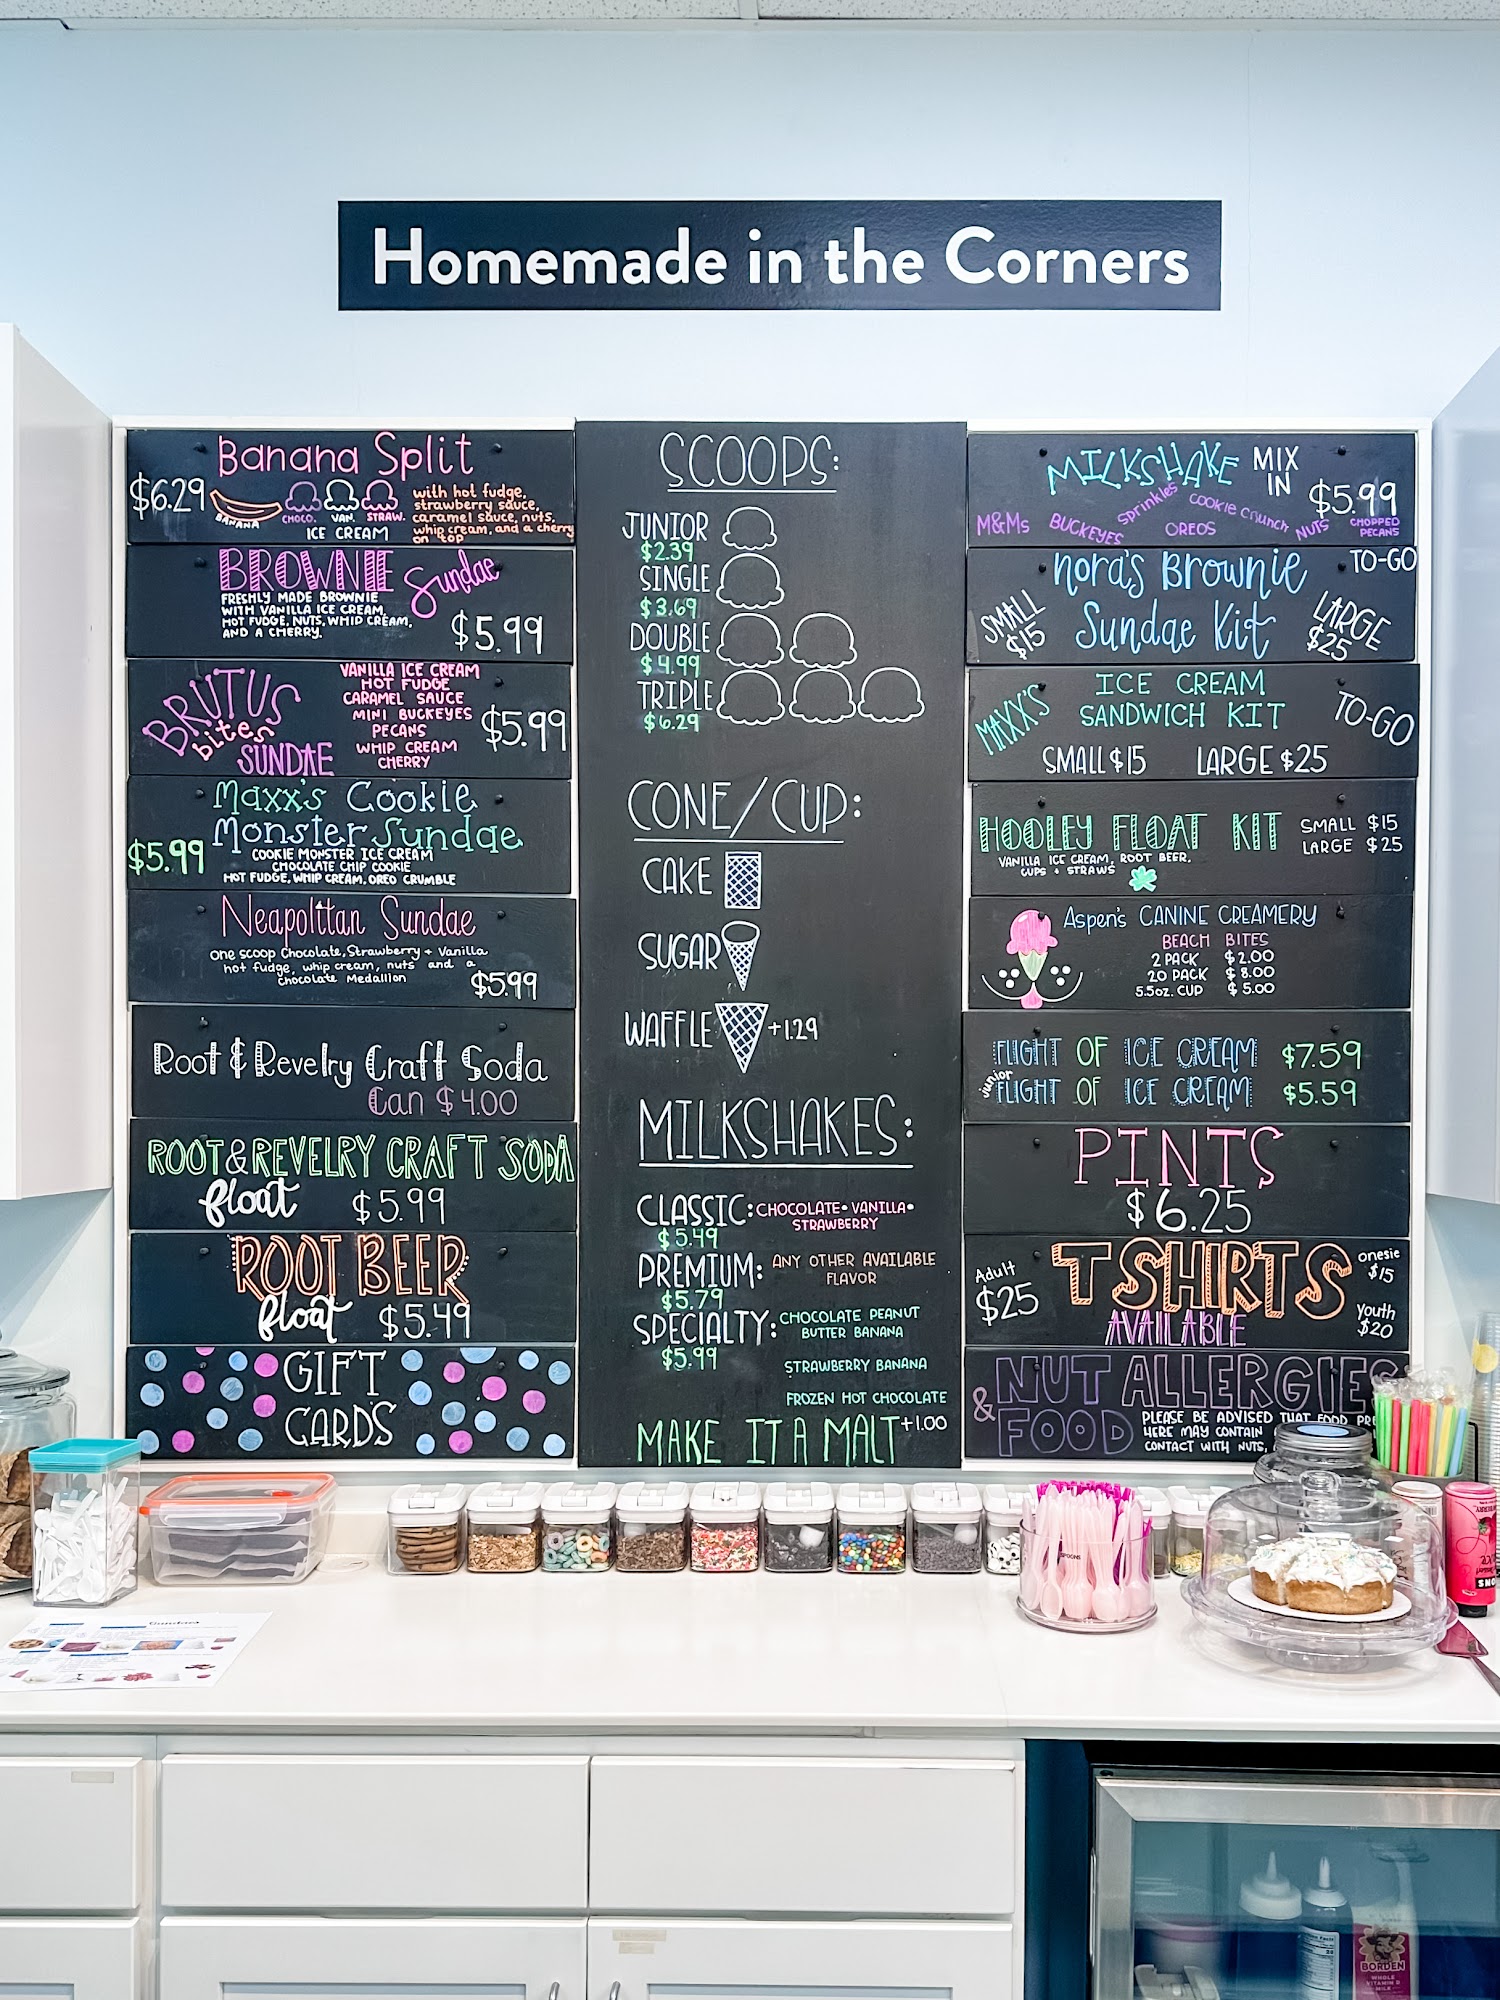 Homemade in the Corners
Banana Split
$6.29
BANANA
CHOCO. VAN. STRAW.
ICE CREAM
with hot fudge,
strawberry sauce,
caramel sauce, nuts,
whip cream, and a cherry
on top
BROWNIE Sundae
FRESHLY MADE BROWNIE
WITH VANILLA ICE CREAM,
HOT FUDGE, NUTS, WHIP CREAM,
AND A CHERRY.
$5.99
BRUTUS
bites
SUNDAE
VANILLA ICE CREAM
HOT FUDGE
CARAMEL SAUCE
MINI BUCKEYES
PECANS
WHIP CREAM
CHERRY
$5.99
Maxx's Cookie
Monster Sundae
$5.99
COOKIE MONSTER ICE CREAM
CHOCOLATE CHIP COOKIE
HOT FUDGE, WHIP CREAM, OREO CRUMBLE
Neapolitan Sundae
one scoop Chocolate, Strawberry + Vanilla
hot fudge, whip cream, nuts and a
Chocolate Medallion
$5.99
Root & Revelry Craft Soda
Can $4.00
ROOT & REVELRY CRAFT SODA
float $5.99
ROOT BEER
float $5.49
GIFT
CARDS
SCOOPS:
JUNIOR
$2.39
SINGLE
$3.69
DOUBLE
$4.99
TRIPLE
$6.29
CONE/CUP:
CAKE
SUGAR
WAFFLE +1.29
MILKSHAKES:
CLASSIC: CHOCOLATE • VANILLA •
STRAWBERRY
$5.49
PREMIUM: ANY OTHER AVAILABLE
FLAVOR
$5.79
SPECIALTY: CHOCOLATE PEANUT
BUTTER BANANA
$5.99
STRAWBERRY BANANA
FROZEN HOT CHOCOLATE
MAKE IT A MALT +1.00
MILKSHAKE MIX
IN
$5.99
M&Ms BUCKEYES Sprinkles OREOS COOKIE CRUNCH NUTS CHOPPED
PECANS
nora's Brownie TO-GO
Sundae Kit
SMALL
$15
LARGE
$25
MAXX'S
ICE CREAM
SANDWICH KIT
TO-GO
SMALL $15 LARGE $25
HOOLEY FLOAT KIT
SMALL $15
LARGE $25
VANILLA ICE CREAM, ROOT BEER,
CUPS + STRAWS
Aspen's CANINE CREAMERY
BEACH BITES
2 PACK $2.00
20 PACK $8.00
5.5oz. CUP $5.00
FLIGHT OF ICE CREAM $7.59
junior
FLIGHT OF ICE CREAM $5.59
PINTS
$6.25
Adult
$25
TSHIRTS
AVAILABLE
onesie
$15
Youth
$20
NUT ALLERGIES
& FOOD
PLEASE BE ADVISED THAT FOOD PRE
HERE MAY CONTAIN
CONTACT WITH NUTS,
Sundaes
SPOONS
BORDEN
WHOLE
VITAMIN D
MILK